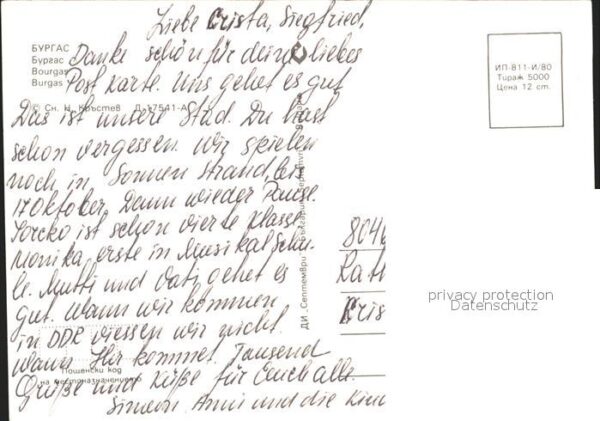 Liebe Crista, Siegfried,
БУРГАС
Бургас
Bourgas
Burgas
Danke schön für deine liebes
Post karte. Uns gehet es gut
© Сн. Н. Кръстев Д-17541-А
Das ist unsere Stad. Du hast
schon vergessen. Wir spielen
noch in Sonnen Strand, bis
17 Oktober. Dann wieder Pause.
ist schon vierte klasse
Monika erste in Musikal Schu-
le. Mutti und Vati gehet es
gut. Wann wir kommen
in DDR wiessen wir nicht.
Wann Ihr kommet. Tausend
Grüße und Küße für Euch alle.
Simeon Anni und die Kin
Пощенски код
на местоназначението
ДИ „Септември“
ИП-811-И/80
Тираж 5000
Цена 12 ст.
8046
Rath
Cris
privacy protection
Datenschutz